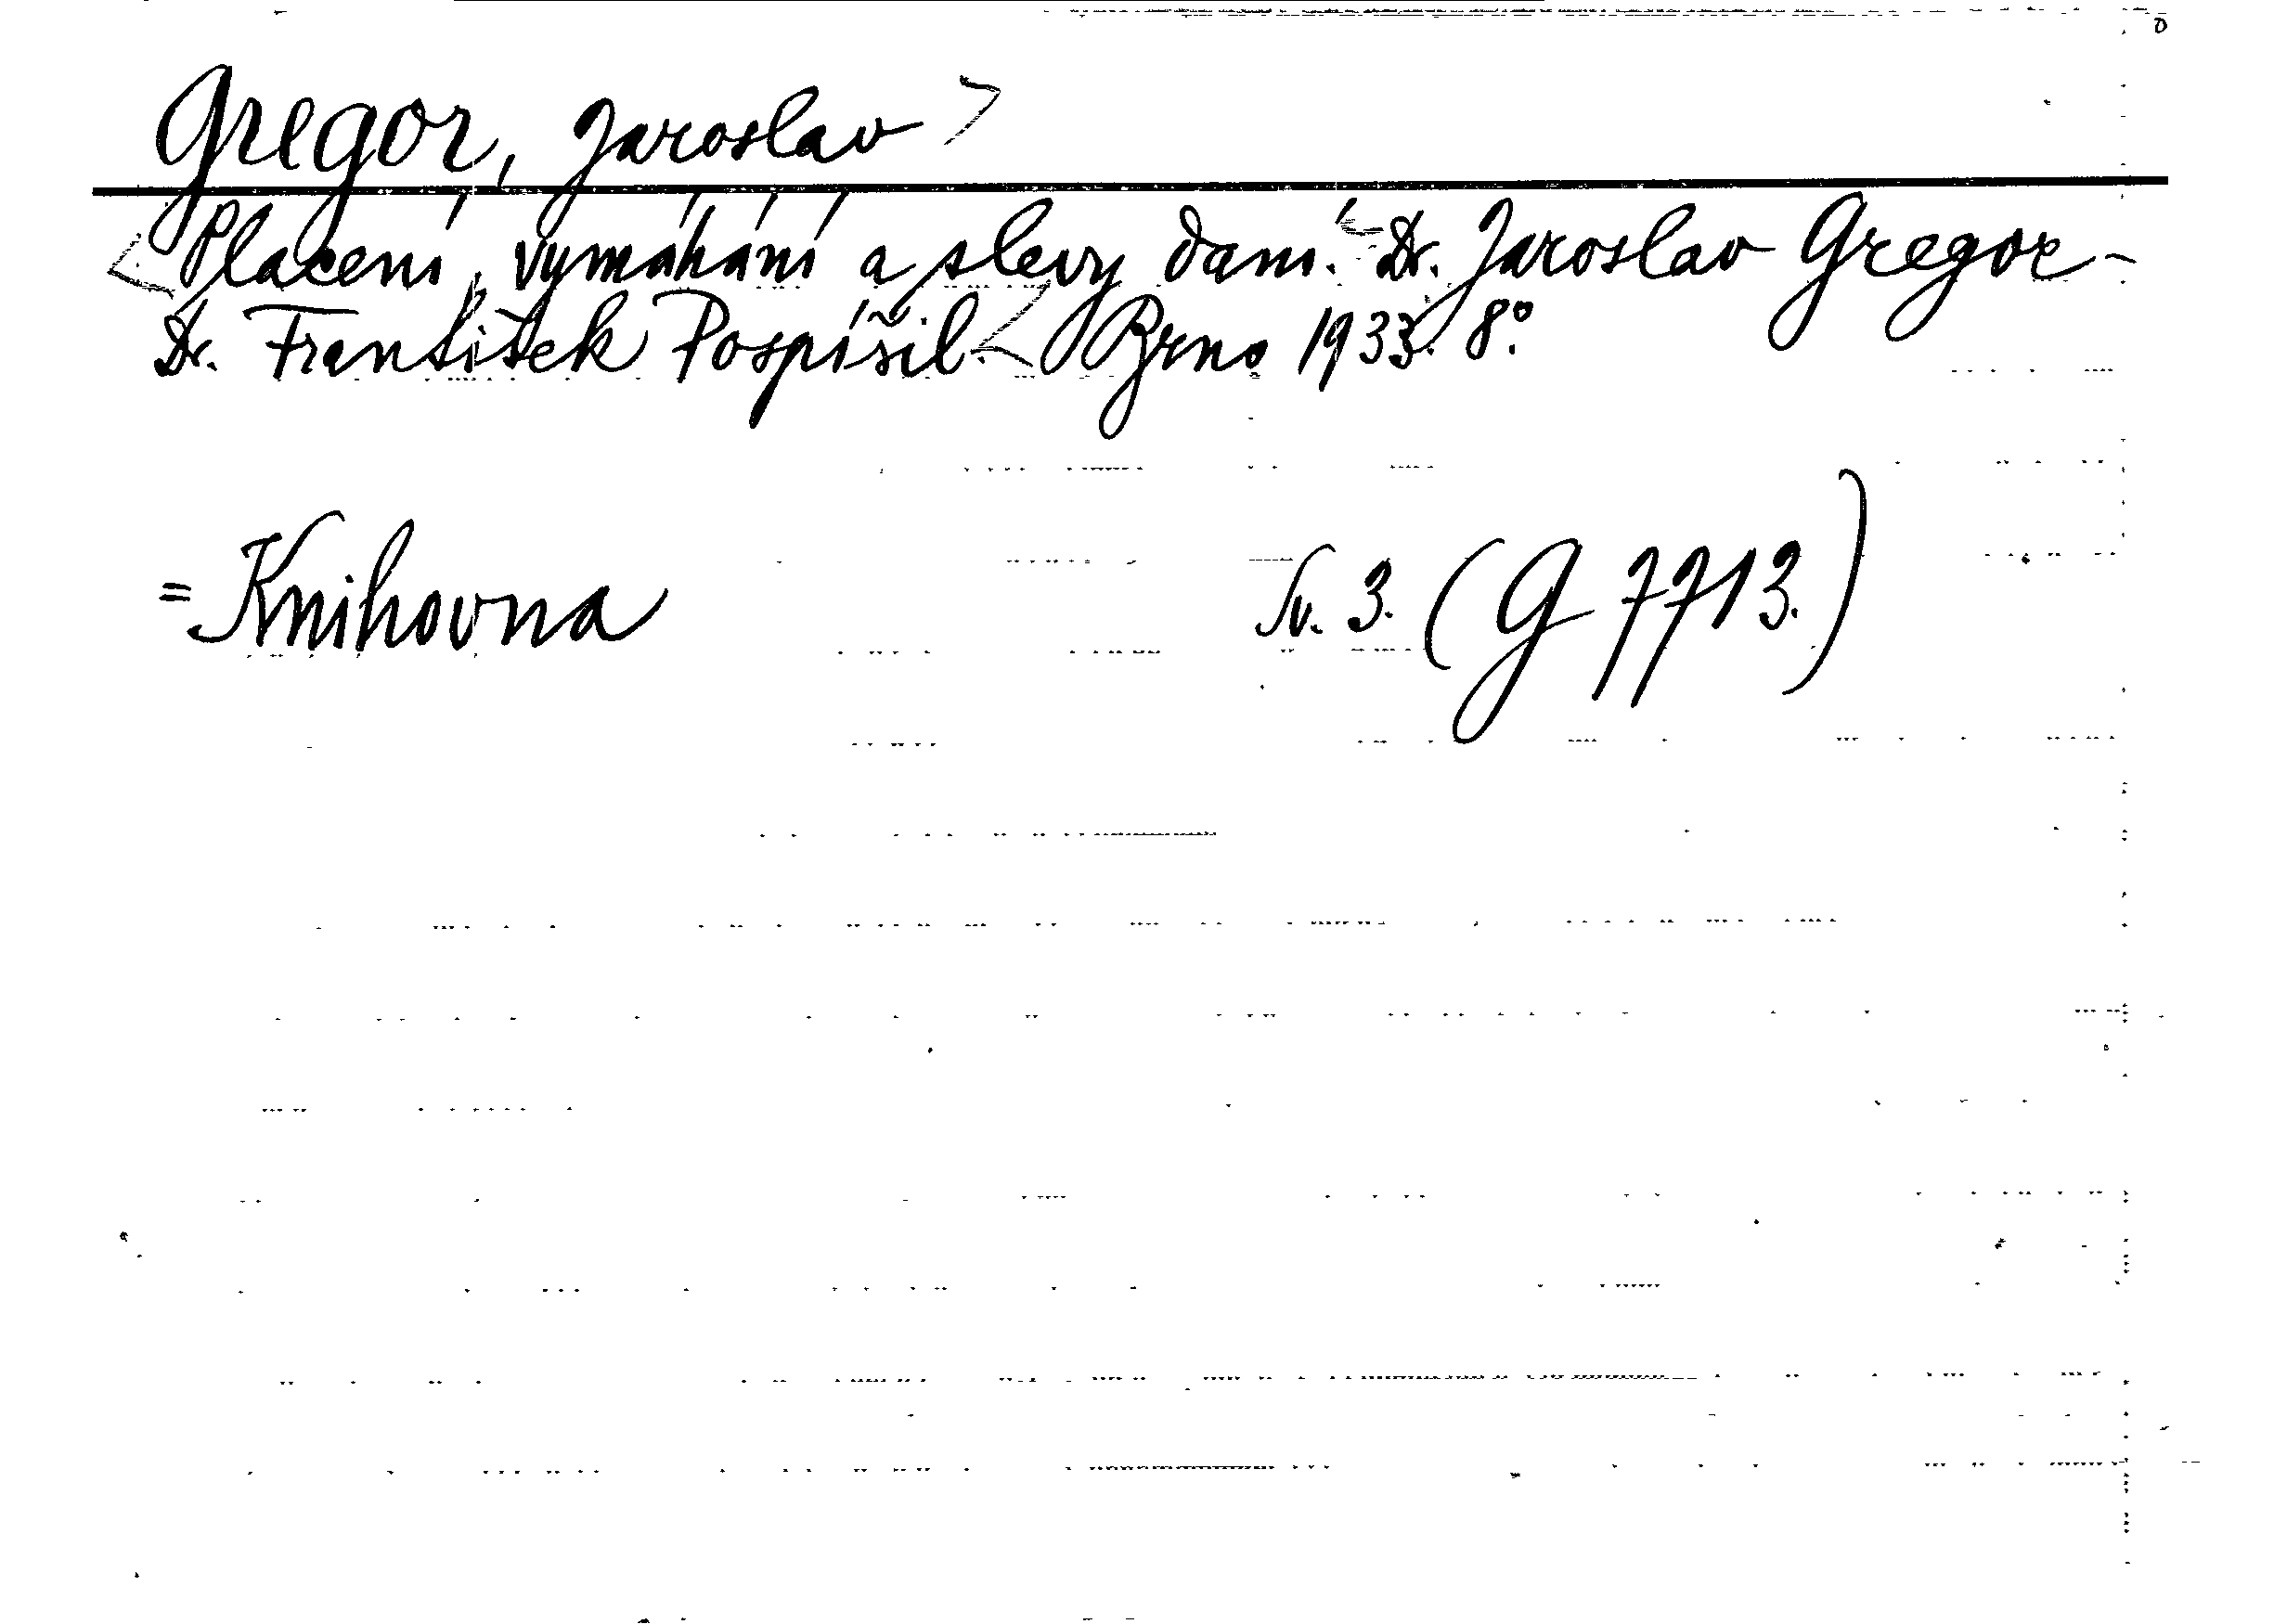 Gregor, Jaroslav
Placení, vymáhání a slevy daní. Dr. Jaroslav Gregor -
Dr. František Pospíšil. Brno 1933. 8°.
= Knihovna Sv. 3. (G 7713.)